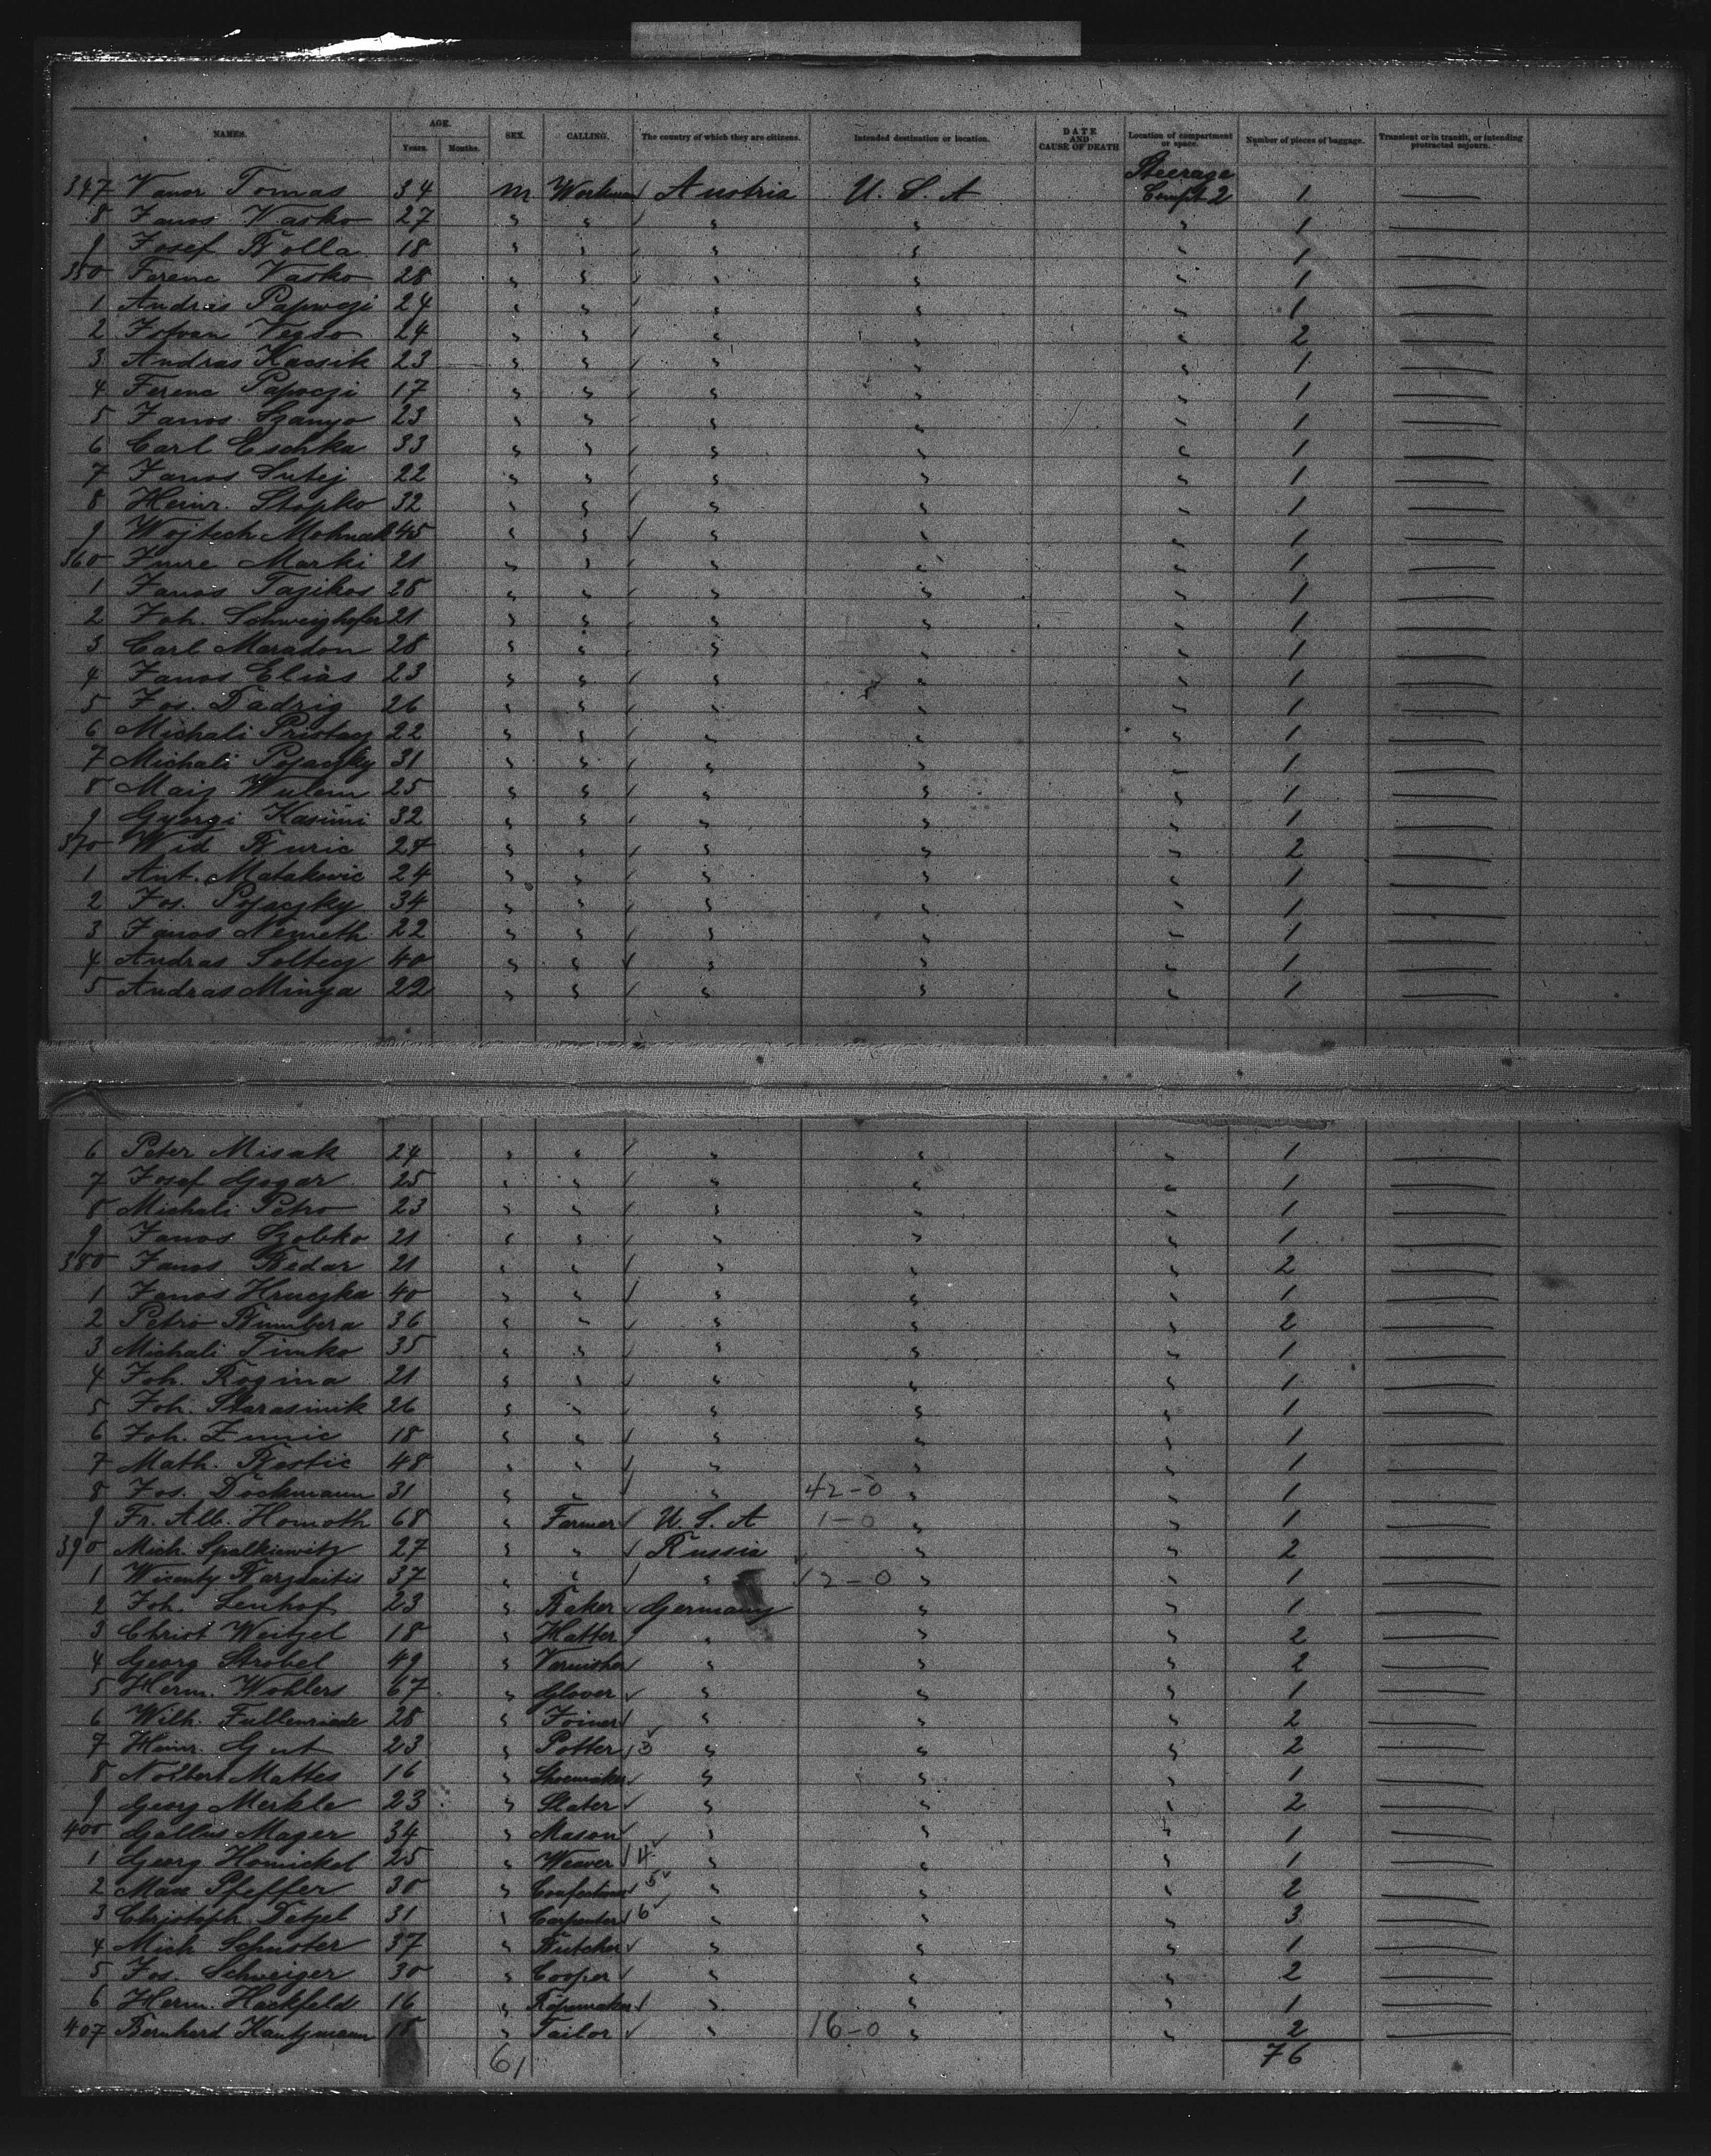 NAMES. AGE. SEX. CALLING. The country of which they are citizens. Intended destination or location. DATE AND CAUSE OF DEATH Location of compartment or space. Number of pieces of baggage. Transient or in transit, or intending protracted sojourn.
Years. Months.
Steerage
347 Tomas 34 m. Workman Austria U. S. A Compt 2 1
8 Janos Vasko 27 " " " " " 1
9 Josef Bolla 18 " " " " " 1
350 Ferenc Vasko 28 " " " " " 1
1 Andras Papoczi 24 " " " " " 1
2 Istvan 24 " " " " " 2
3 Andras Kacsik 23 " " " " " 1
4 Ferenc Papoczi 17 " " " " " 1
5 Janos Szanyo 23 " " " " " 1
6 Carl Eschka 33 " " " " " 1
7 Janos Sutej 22 " " " " " 1
8 Heinr. Stopko 32 " " " " " 1
9 Wojtech 45 " " " " " 1
360 Imre Marki 21 " " " " " 1
1 Janos Tajikos " " " " " 1
2 Joh. Schweighofer 21 " " " " " 1
3 Carl Maradon 28 " " " " " 1
4 Janos Elias 23 " " " " " 1
5 Jos. Dadrig 26 " " " " " 1
6 Michali 22 " " " " " 1
7 Michali Pojaczky 31 " " " " " 1
8 Maij Wulem 25 " " " " " 1
9 Gyorgi Kasimi 32 " " " " " 1
370 Wid Buric 27 " " " " " 2
1 Ant. Matakovic 24 " " " " " 1
2 Jos. Pojaczky 34 " " " " " 1
3 Janos Nemeth 22 " " " " " 1
4 Andras 40 " " " " " 1
5 Andras Minya 22 " " " " " 1
6 Peter Misak 24 " " " " " 1
7 Josef Gogar 25 " " " " " 1
8 Michali Petro 23 " " " " " 1
9 Janos Szobko 21 " " " " " 1
380 Janos Bedar 21 " " " " " 2
1 Janos Hruczka 40 " " " " " 1
2 Petro Bumbera 36 " " " " " 2
3 Michali Timko 35 " " " " " 1
4 Joh. Rogina 21 " " " " " 1
5 Joh. Starasinik 26 " " " " " 1
6 Joh. Zunic 18 " " " " " 1
7 Math. Bestic 48 " " " " " 1
8 Jos. Dockmann 31 " " " 42-0 " " 1
9 Fr. Alb. Homoth 68 " Farmer U. S. A 1-0 " " 1
390 Mich. Spalkiewitz 27 " " Russia " " 2
1 37 " " " 2-0 " " 1
2 Joh. Lenhof 23 " Baker Germany " " 1
3 Christ Weitzel 18 " Hatter " " " 2
4 Georg Strobel 49 " Varnisher " " " 2
5 Herm. Wohlers 67 " Glover " " " 1
6 Wilh. Fullenriede 28 " Joiner " " " 2
7 Heinr. Gut 23 " Potter 3 " " " 2
8 Nolbert Mattes 16 " Shoemaker " " " 1
9 Georg Merkle 23 " Slater " " " 2
400 Gallus Mager 34 " Mason " " " 1
1 Georg Homickel 25 " Weaver 4 " " " 1
2 Max Pfeffer 30 " Confectioner 5 " " " 2
3 Christoph Detzel 31 " Carpenter 6 " " " 3
4 Mich Schuster 37 " Butcher " " " 1
5 Jos. Schweiger 30 " Cooper " " " 2
6 Herm. Hackfeld 16 " Ropemaker " " " 1
407 Bernhard Kautzmann " Tailor " 16-0 " " 2
61 76